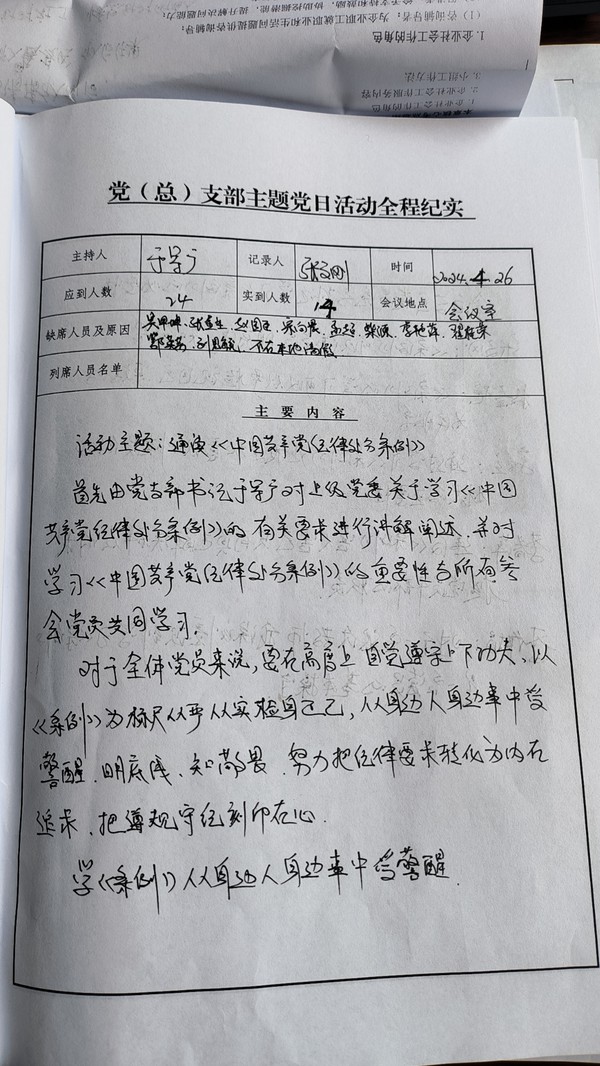 1. 企业社会工作的角色
(1) 咨询辅导者：为企业职工就职业和生活问题提供咨询辅导；
2. 企业社会工作服务内容
3. 小组工作方法
党（总）支部主题党日活动全程纪实
主持人 于学广 记录人 时间 2024.4.26
应到人数 24 实到人数 14 会议地点 会议室
缺席人员及原因
不在本地请假
列席人员名单
主要内容
活动主题：通读《中国共产党纪律处分条例》
首先由党支部书记于学广对上级党委关于学习《中国
共产党纪律处分条例》的有关要求进行讲解阐述.并对
学习《中国共产党纪律处分条例》的重要性与所有参
会党员共同学习.
对于全体党员来说，要在高度上自觉遵守上下功夫、以
《条例》为标尺从严从实检自己己，从身边人身边事中受
警醒、明底线、知敬畏、努力把纪律要求转化为内在
追求、把遵规守纪刻印在心.
学《条例》从身边人身边事中受警醒.